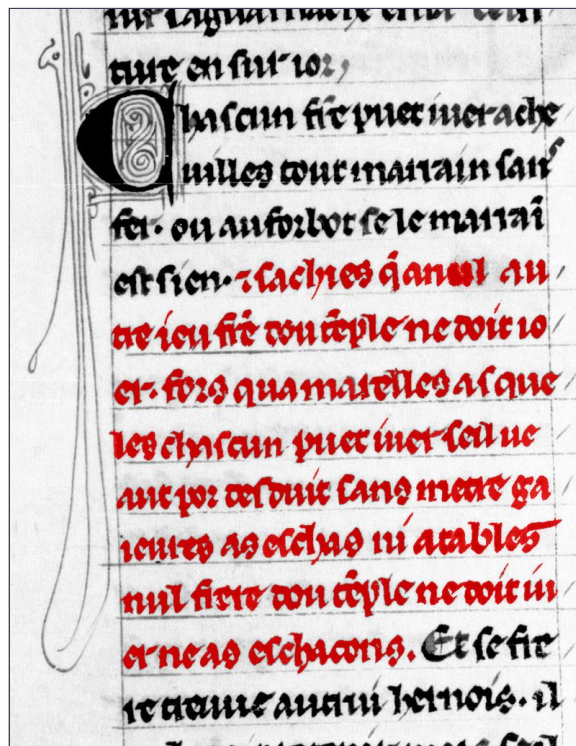 ture en sur ior,
Chascun frẽ puet iuer ache
uilles tout marrain sans
fer· ou au forbot se le marraĩ
est sien· ⁊ sachies q̃ anul au
tre ieu frẽ dou tẽple ne doit io
er· fors qua marelles as que
les chascun puet iuer seil ue
aut por desduit sans metre ga
ieures as eschas ni atables
nul frere dou tẽple ne doit iu
er ne as eschacons. Et se fre
re treuue autrui hernois· il